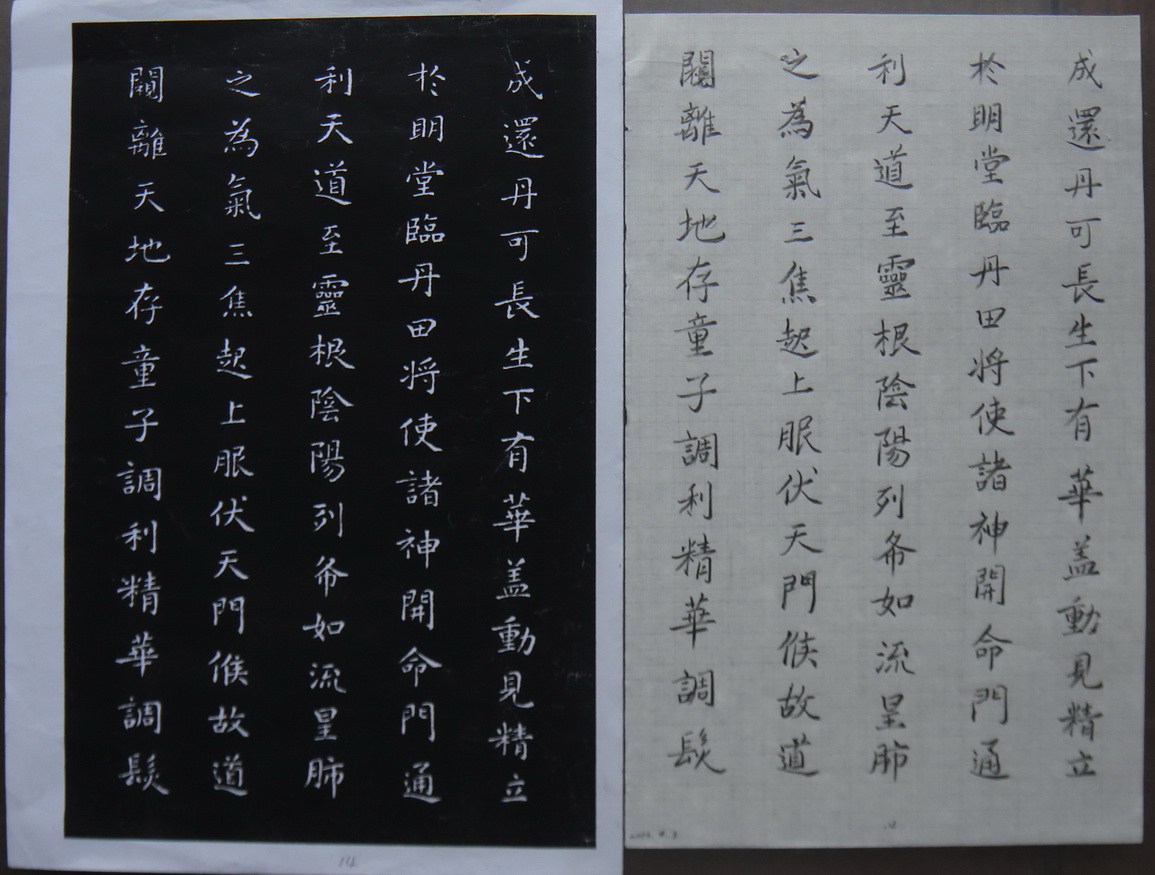 成還丹可長生下有華盖動見精立
於明堂臨丹田将使諸神開命門通
利天道至靈根陰陽列布如流星肺
之為氣三焦起上服伏天門候故道
闚離天地存童子調利精華調髮
14
成還丹可長生下有華盖動見精立
於明堂臨丹田将使諸神開命門通
利天道至靈根陰陽列布如流星肺
之為氣三焦起上服伏天門候故道
闚離天地存童子調利精華調髮